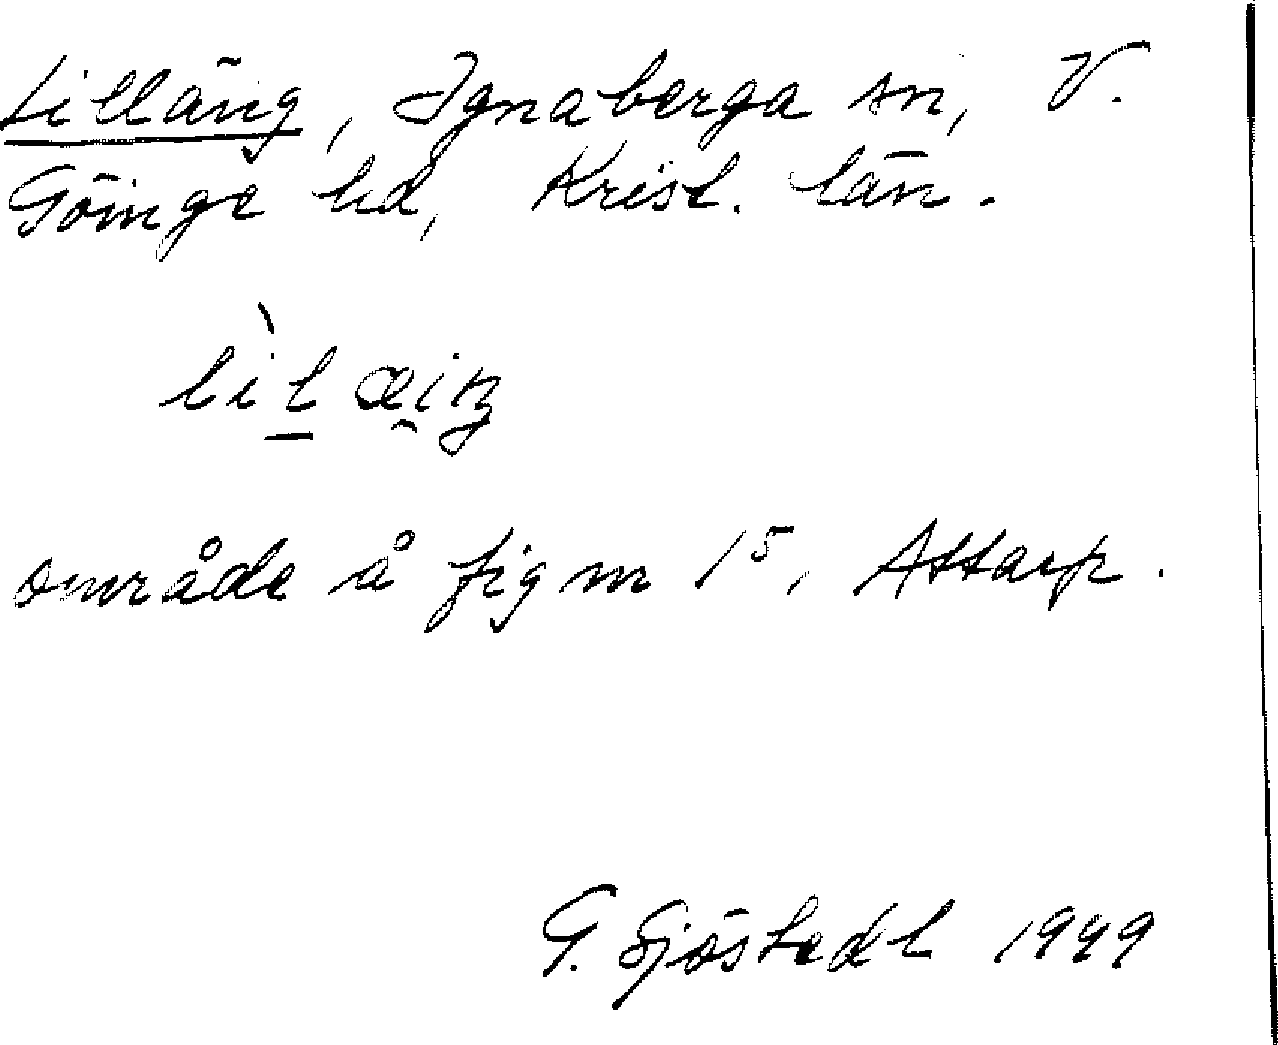 Lilläng, Ignaberga sn, V.
Göinge hd, Krist. län.
lìl̠æi̯ŋ
område å fig m 15, Attarp.
G. Sjöstedt 1949